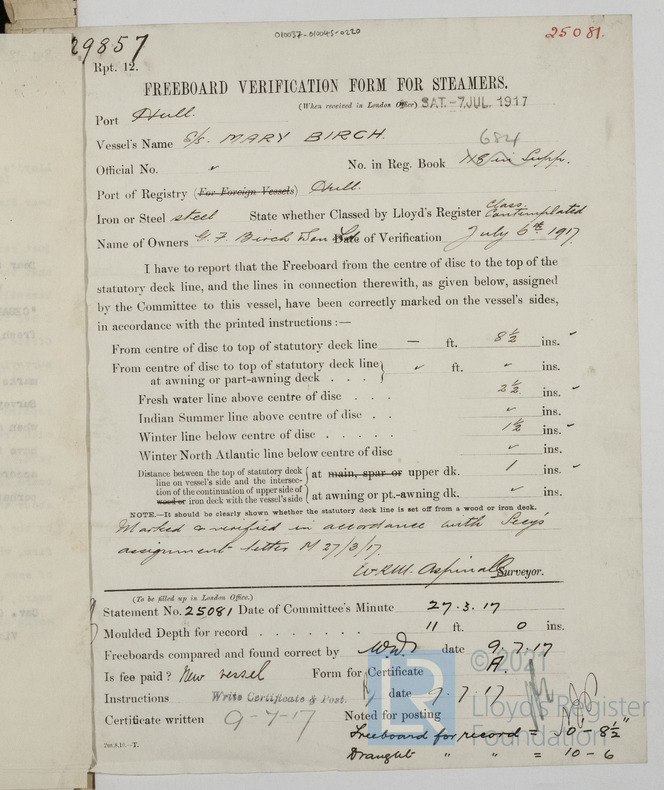 29857
010037-010045-0220
25081.
Rpt. 12.
FREEBOARD VERIFICATION FORM FOR STEAMERS.
(When received in London Office) SAT.-7 JUL. 1917
Port Hull.
Vessel's Name S/S. MARY BIRCH.
684
Official No. No. in Reg. Book in Supp.
Port of Registry (For Foreign Vessels) Hull.
Iron or Steel steel State whether Classed by Lloyd's Register Class Contemplated
Name of Owners G. F. Birch Son Ld Date of Verification July 6th 1917
I have to report that the Freeboard from the centre of disc to the top of the
statutory deck line, and the lines in connection therewith, as given below, assigned
by the Committee to this vessel, have been correctly marked on the vessel's sides,
in accordance with the printed instructions :—
From centre of disc to top of statutory deck line — ft. 8½ ins.
From centre of disc to top of statutory deck line
at awning or part-awning deck . . . ft. ins.
Fresh water line above centre of disc . . . 2½ ins.
Indian Summer line above centre of disc . . ins.
Winter line below centre of disc . . . . . 1½ ins.
Winter North Atlantic line below centre of disc ins.
Distance between the top of statutory deck
line on vessel's side and the intersec-
tion of the continuation of upper side of
wood or iron deck with the vessel's side
at main, spar or upper dk. 1 ins.
at awning or pt.-awning dk. ins.
NOTE.—It should be clearly shown whether the statutory deck line is set off from a wood or iron deck.
Marked & verified in accordance with Secy's
assignment letter M 27/3/17.
W.R.M. Aspinall Surveyor.
(To be filled up in London Office.)
Statement No. 25081 Date of Committee's Minute 27.3.17
Moulded Depth for record . . . . . . . 11 ft. 0 ins.
Freeboards compared and found correct by date 9.7.17
Is fee paid? New vessel Form for Certificate A.
Instructions Write Certificate & Post. date 9.7.17
Certificate written 9-7-17 Noted for posting
Freeboard for record = 0' - 8½"
Draught " " = 10 - 6
2m,8,10.—T.
© 2021
LR
Lloyd's Register
Foundation